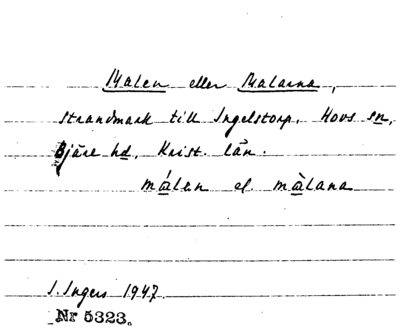 Malen eller Malarna,
strandmark till Ingelstorp. Hovs sn,
Bjäre hd, Krist. län.
málen el. màlana
I. Ingers 1947.
Nr 5323.